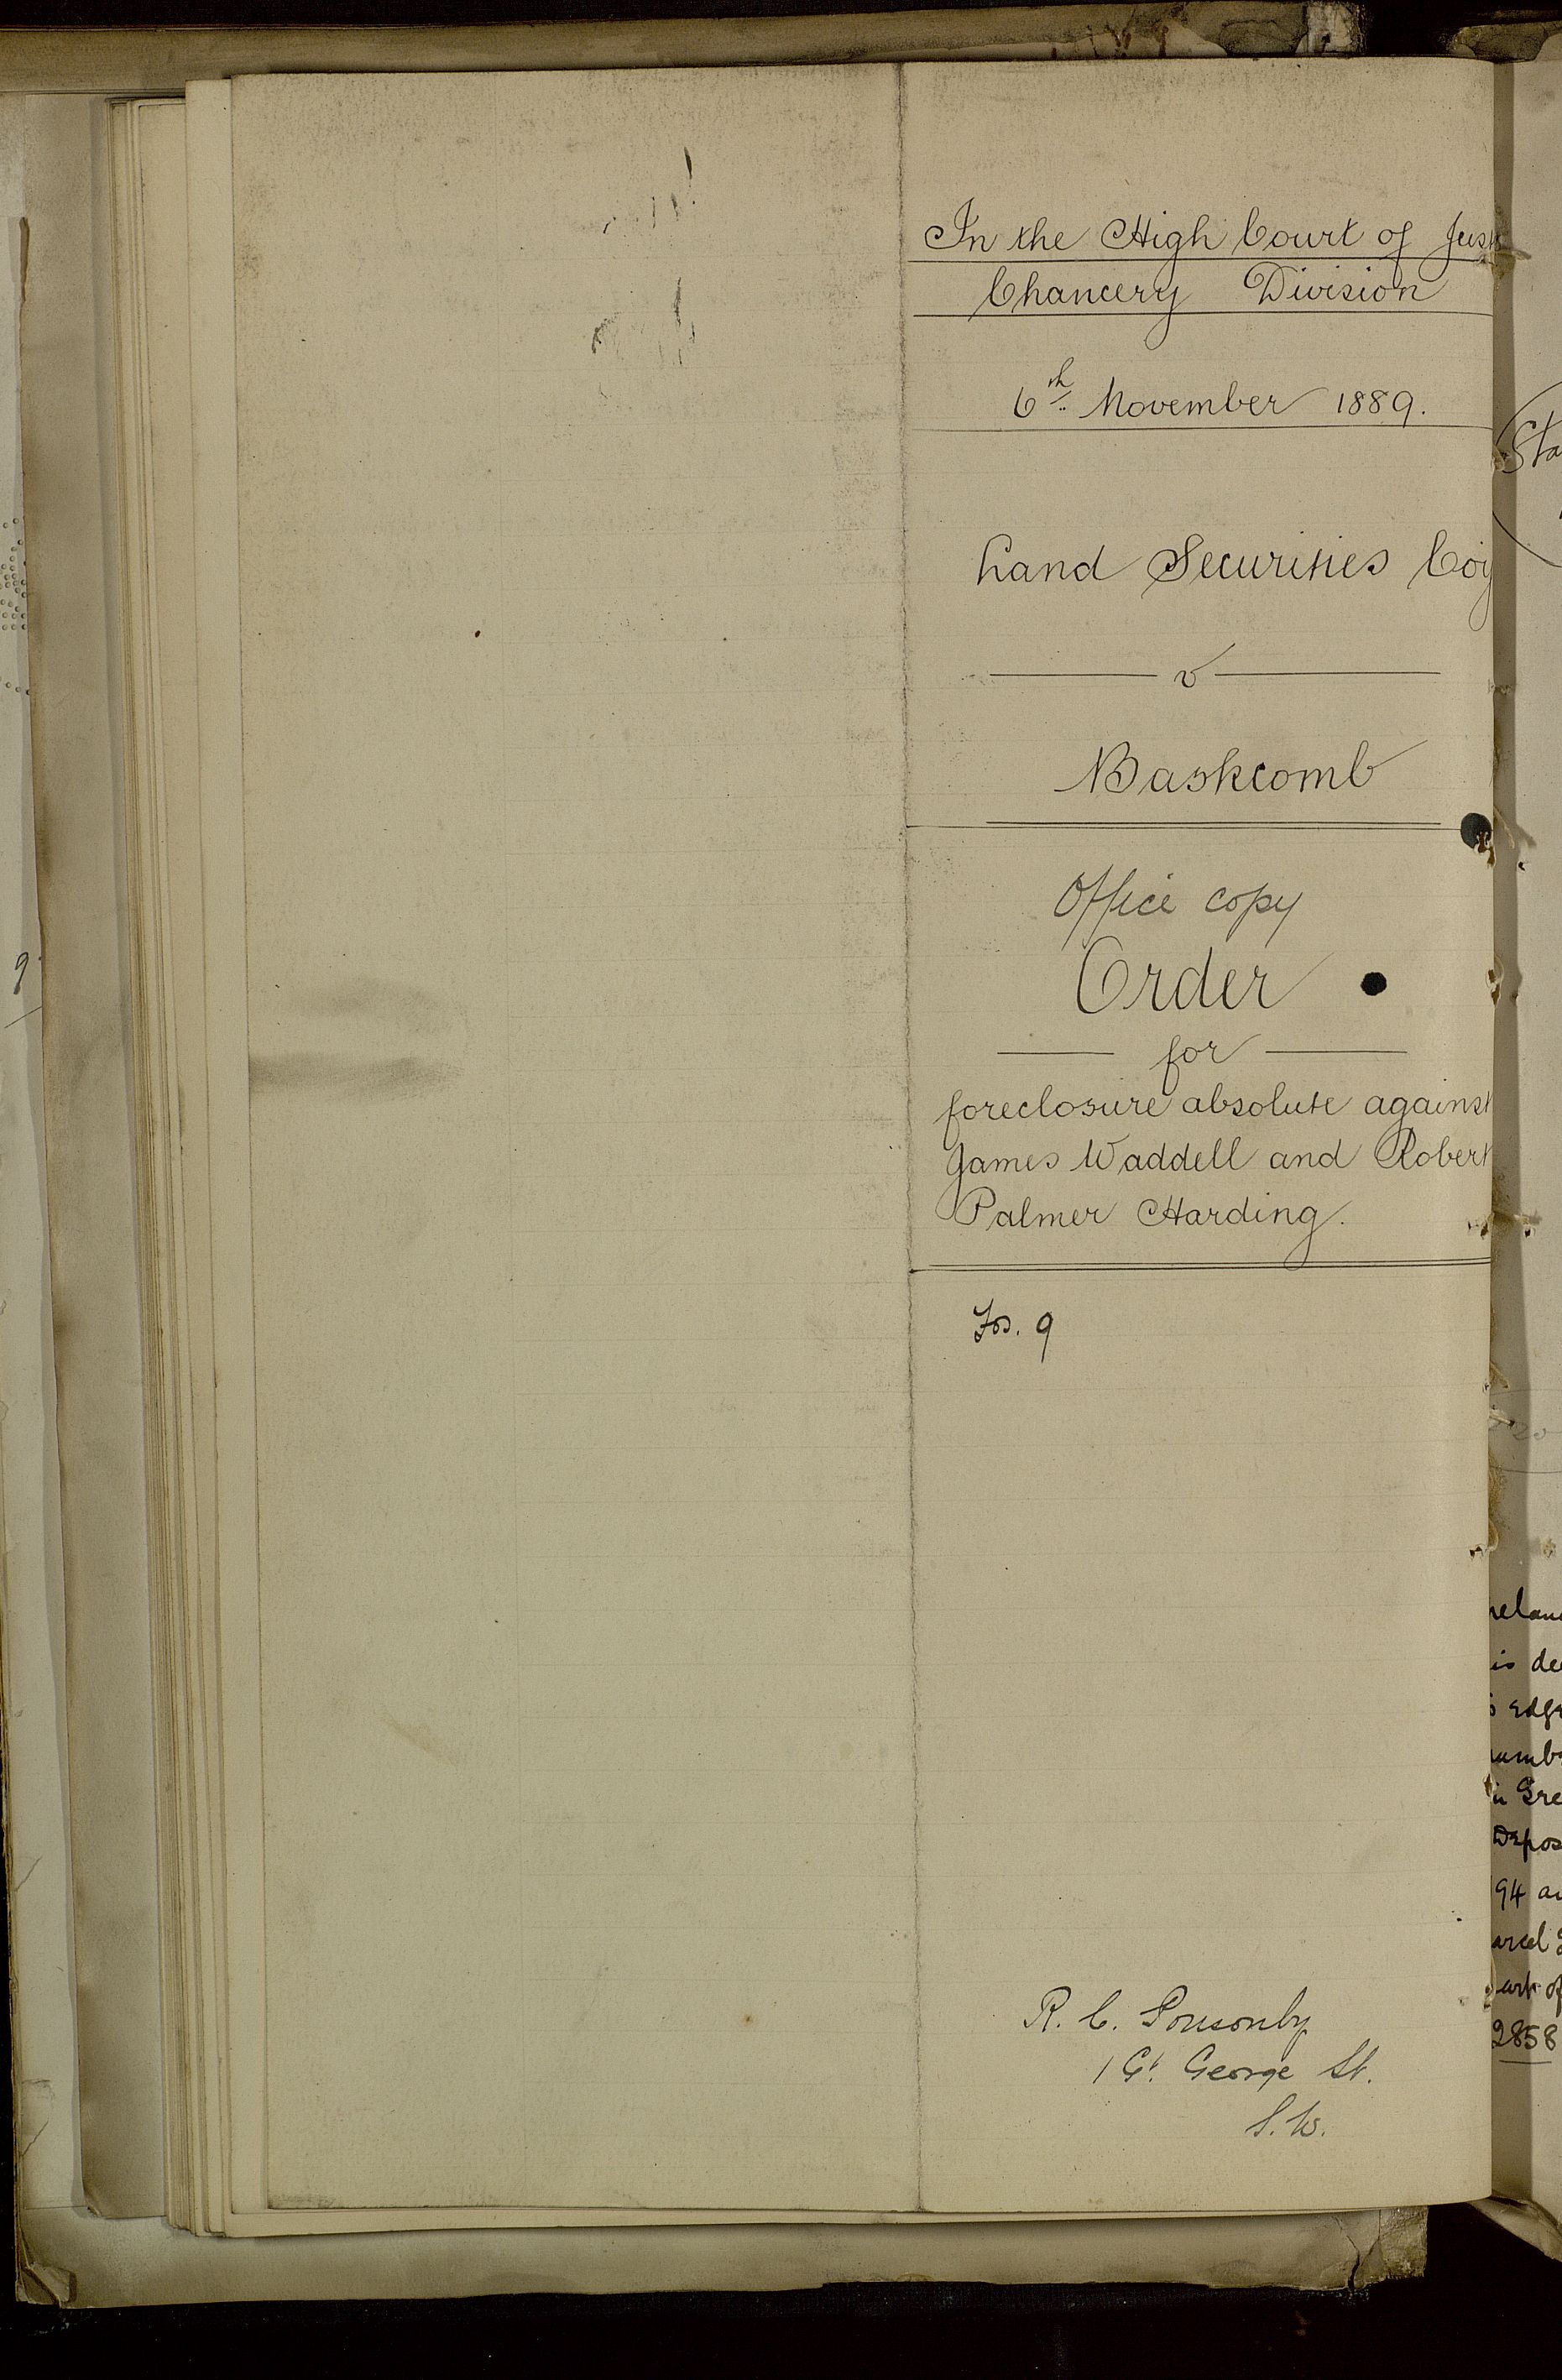 In the High Court of Just
Chancery Division
6th November 1889.
Land Securities Coy
v
Bashcomb
Office copy
Order
for
foreclosure absolute against
James Waddell and Robert
Palmer Harding.
Fos. 9
R. C. Ponsonby
1 Gt. George St.
S.W.
9
Sta
is de
Depos
94 a
2858